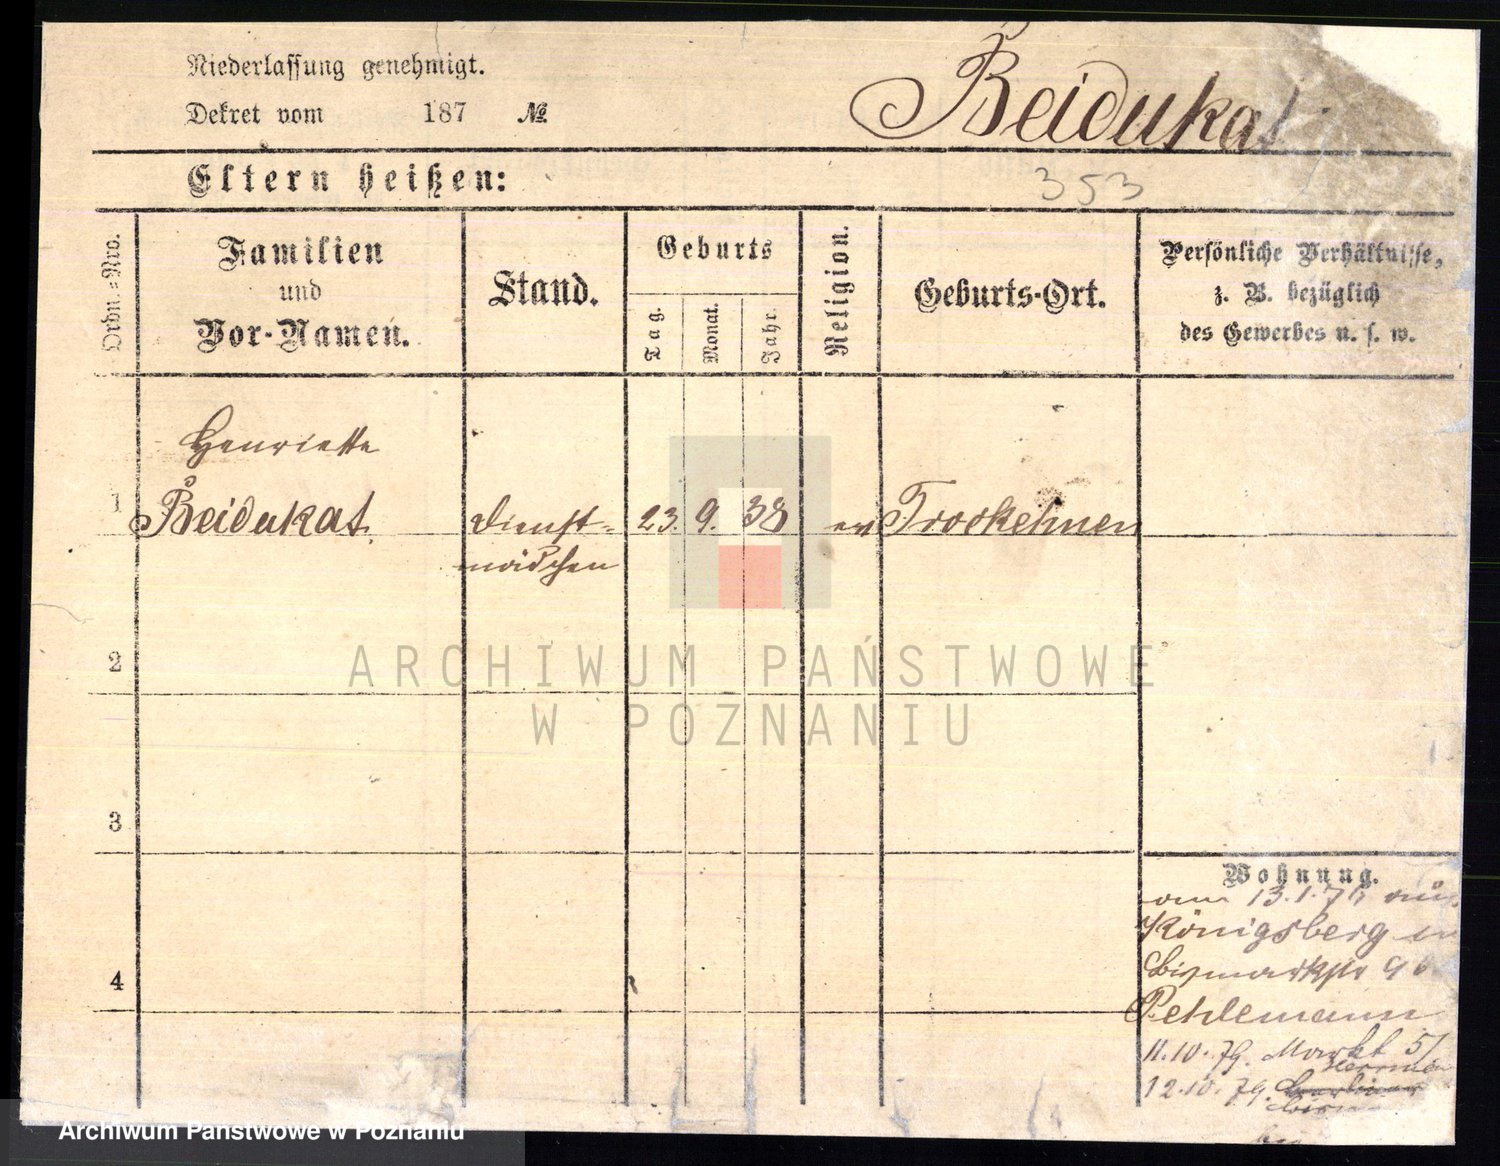 Niederlassung genehmigt.
Dekret vom 187 №
Beidukat
Eltern heißen:
353
Ordn.=Nro.
Familien
und
Vor-Namen.
Stand.
Geburts
Tag.
Monat.
Jahr.
Religion.
Geburts-Ort.
Persönliche Verhältnisse,
z. B. bezüglich
des Gewerbes u. s. w.
Henriette
1 Beidukat Dienst= 23. 9. 38 ev
mädchen
2
ARCHIWUM PAŃSTWOWE
W POZNANIU
3
Wohnung.
13.1.76 aus
Königsberg
4 Bismarckstr 9
Pehlemann
11.10.79. Markt 51
12.10.79.
Archiwum Państwowe w Poznaniu